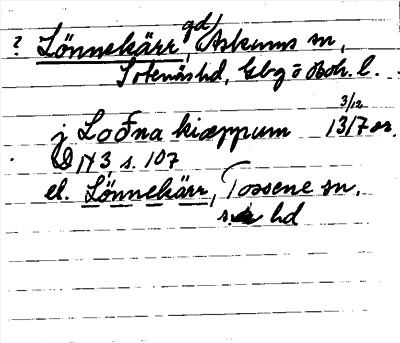 ? Lönnekärr gd, Askums sn,
Sotenäs hd, Gbg o Boh. l.
j Loðna kiærrum 3/12 1317 or.
DN 3 s. 107
el. Lönnekärr, Tossene sn.
s. hd